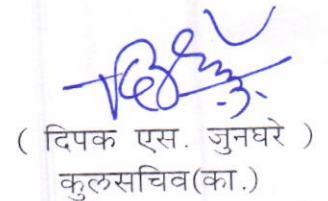 ( दिपक एस. जुनघरे )
कुलसचिव(का.)